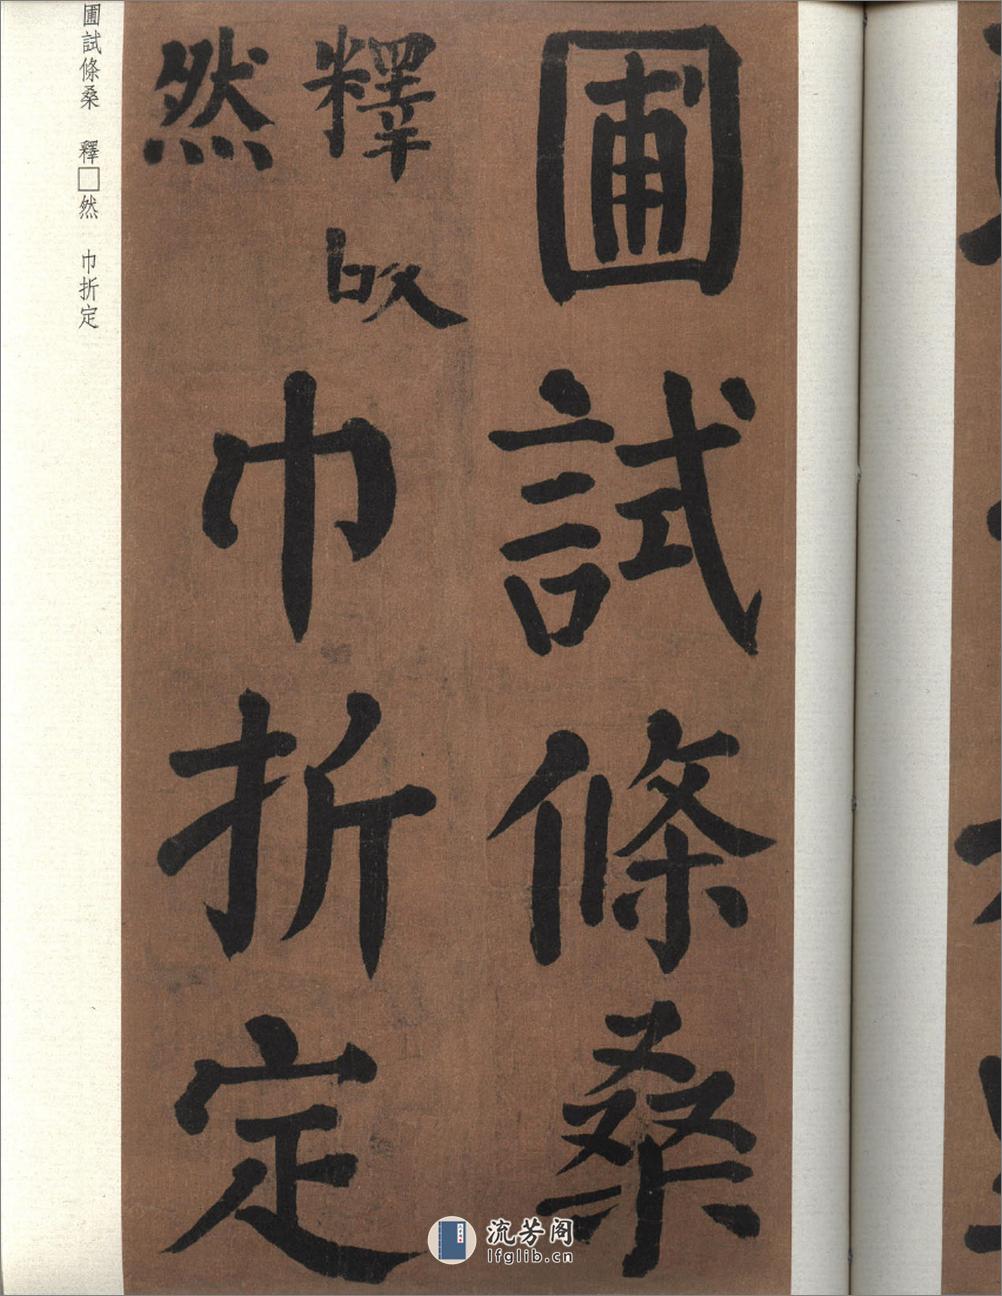 圃試條桑
釋
然
巾折定
圃試條桑 釋□然 巾折定
流芳阁
lfglib.cn